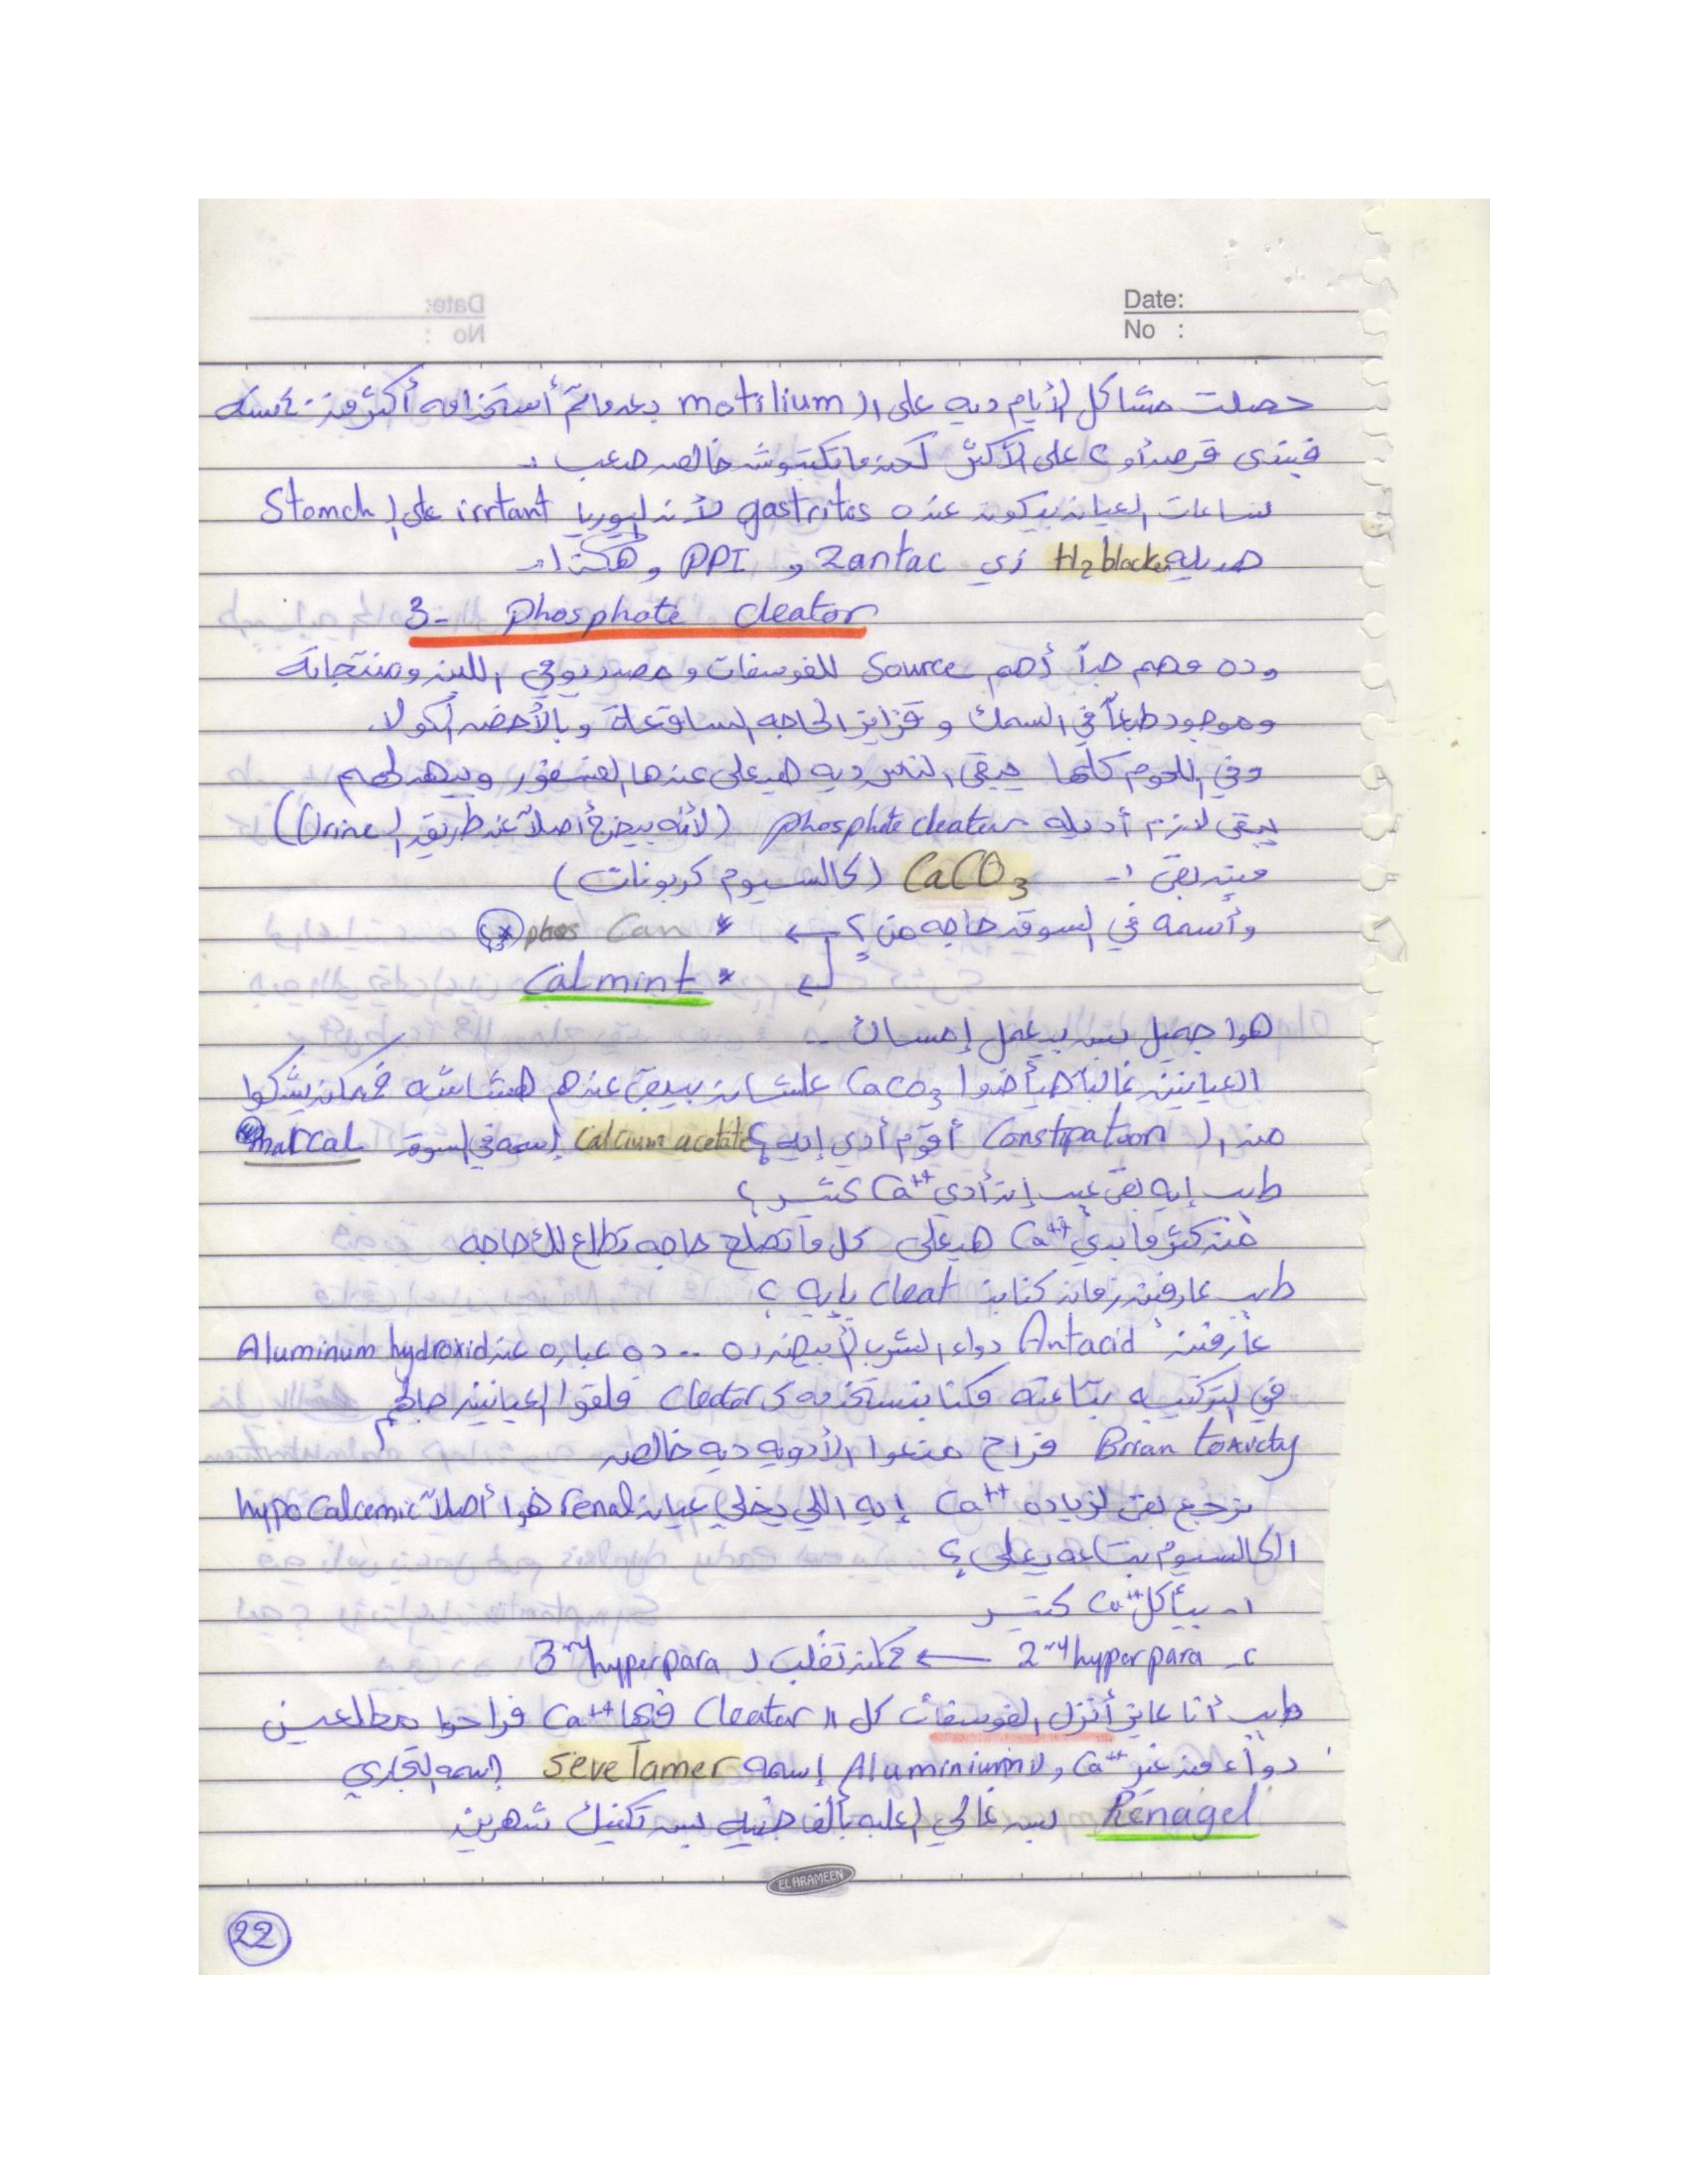 Date:
No :
حصلت مشاكل الأيام ديه على ال motilium بعد ما تم أستخدامه أكتر من
فبندى قرص أو ٢ على الأكتر لكن ما تكتبوش خالص صعب :-
لساعات العيان بيكون عنده gastrites لأن اليوريا irrtant على ال Stomch
هديله H2 blocker زي Zantac و PPI و هكذا :-
3- Phosphate Cleator
وده مهم جداً أهم Source للفوسفات و مصدر يومي اللبن ومنتجاته
وموجود طبعاً في السمك و قزايز الحاجه الساقعة وبالأخص الكولا
وفي اللحوم كلها يبقى الناس ديه هيعلى عندها الفسفور وبيهدلهم
يبقى لازم أديله phosphate cleator (لأنه بيخرج أصلاً عن طريق ال Urine)
مين بقى :- CaCO3 (كالسيوم كربونات)
وأسمه في السوق حاجه من ؟ ← * phos Can
* Calmint
هوا جميل بس بيعمل إمساك ..
العيانين غالباً هيأخدوا CaCO3 علشان بيبقى عندهم هشاشه ممكن يشكوا
من ال Constipatoon أقوم أدي إيه ؟ Calcium acetate إسمه في السوق marcal
طب إيه بقى عيب إن أدي Ca++ كتير ؟
من كتر ما بدي Ca++ هيعلى كل ما تصلح حاجه تطلع لك حاجه
طب عارفين زمان كنا بن Cleat بإيه ؟
عارفين Antacid دواء الشرب الأبيض ده .. ده عباره عن Aluminum hydroxid
في التركيبه بتاعته فكنا بنستخدمه ك Cleator فلقوا العيانين جالهم
Brian toxicty فراح منعوا الأدويه ديه خالص
نرجع بقى لزياده Ca++ إيه اللي يخلي عيان renal هوا أصلاً hypocalcemic
الكالسيوم بتاعه يعلى ؟
١- بيأكل Ca++ كتير
٢- 2ry hyper para ← ممكن تقلب ل 3ry hyperpara
طب أنا عايز أنزل الفوسفات كل ال Cleator فيها Ca++ فراحوا مطلعين
دواء من غير Ca++ ولا Aluminium إسمه seveTamer إسمه التجاري
Renagel بس غالي العلبه بألف جنيه بس تكفيك شهرين
EL ARAMEEN
22